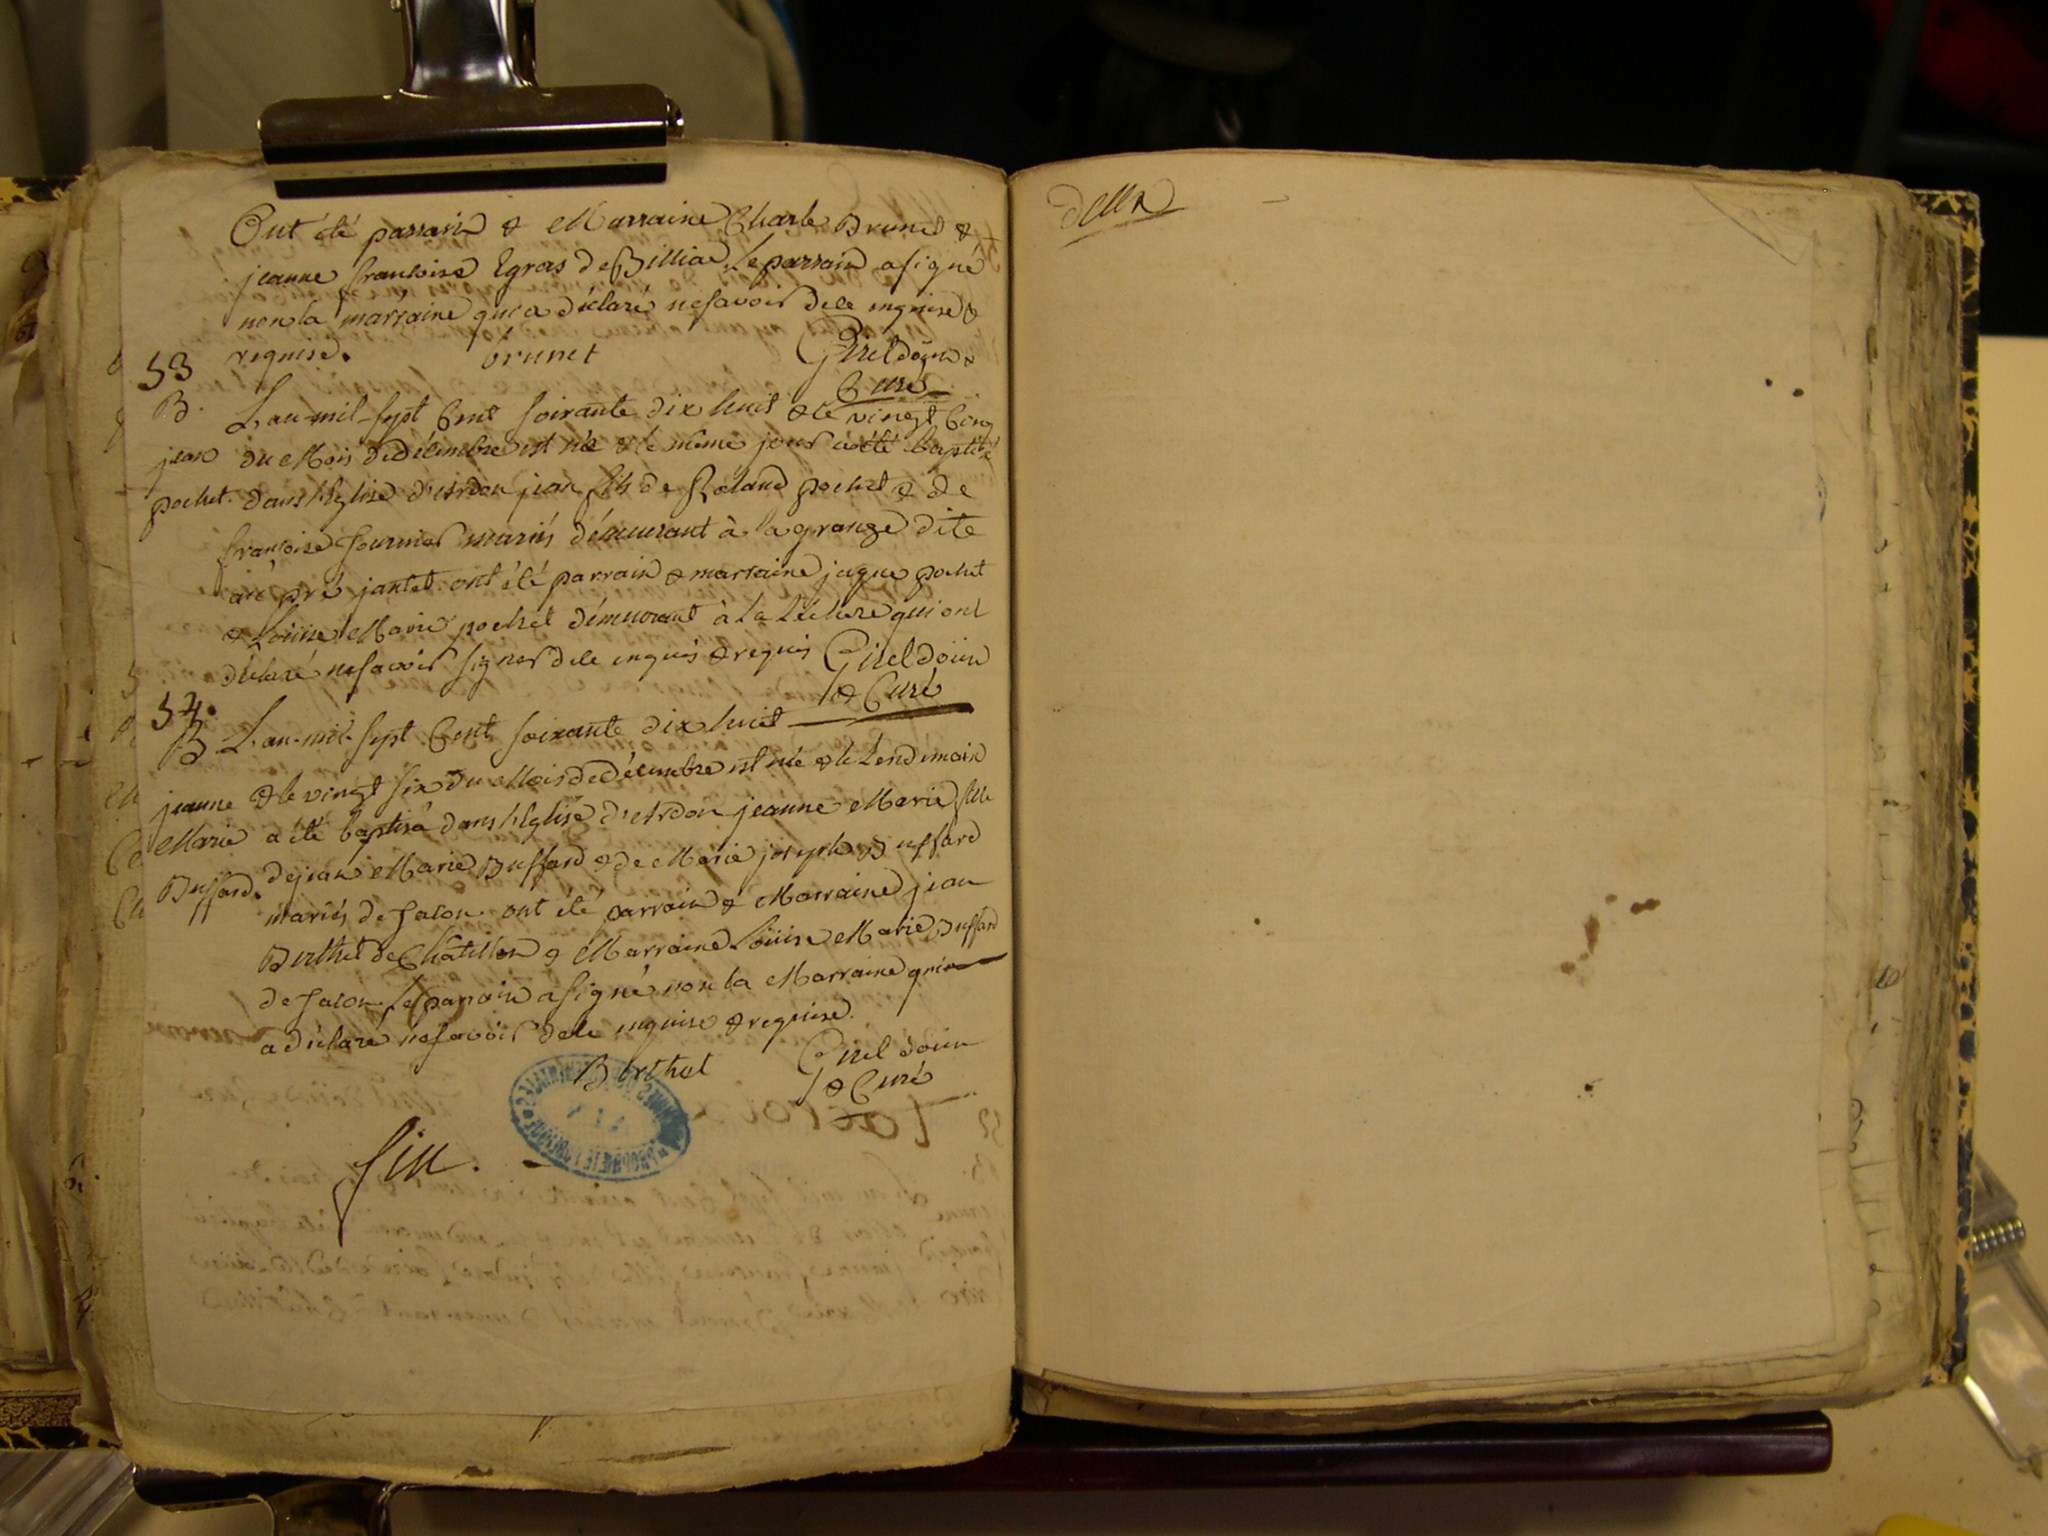 Ont été parrain & Marraine Charle Brunet &
jeanne françoise Egras de Billiac Le parrain a signé
non la marraine qui a déclaré ne savoir de ce enquise &
requise. brunet Girel doÿen &
Curé
53
B. L'an mil sept Cent soixante dix huit & le vingt Cinq
jean du Mois de décembre est né & le même jour a été baptisé
pochet. dans l'Eglise d'Ardon jean fils de Roland pochet & de
françoise fournier mariés démeurant à la grange dite
au pré jantet ont été parrain & marraine jaque pochet
& Loüise Marie pochet démeurant à La Léchere qui ont
déclaré ne savoir signer de ce enquis & requis Girel doïin
& Curé
54.
B L'an mil sept Cent soixante dix huit
jeanne & le vingt six du Mois de Décembre est née & le Lendemain
Marie a été baptisé dans l'Eglise d'Ardon jeanne Marie fille
Buffard. de jean Marie Buffard & de Marie joseph Buffard
mariés de falon ont été parrain & Marraine jean
Berthet de Châtillon & Marraine Loüise Marie Buffard
de falon Le parrain a signé non la Marraine qui
a déclaré ne savoir de ce enquise & requise.
Berthet Girel doïin
& Curé
fin.